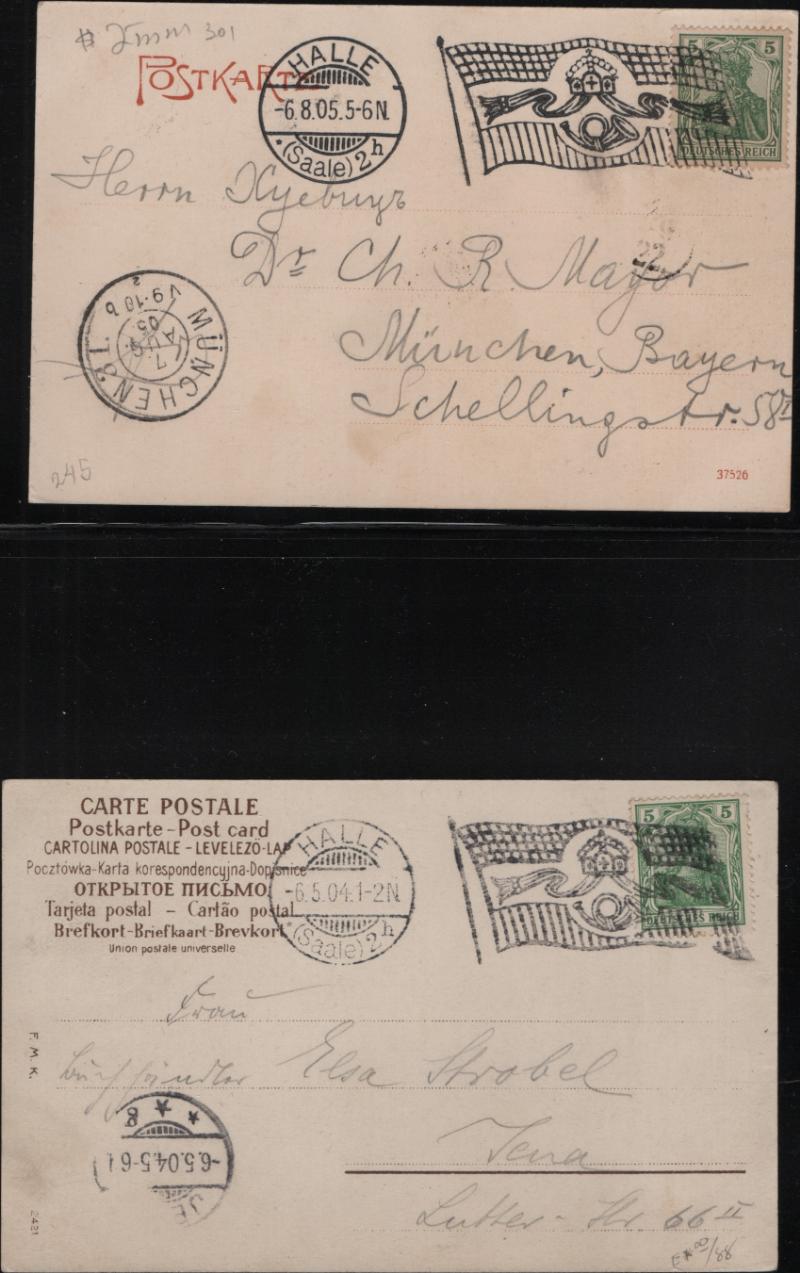 301
POSTKARTE
HALLE
-6.8.05.5-6N.
*(Saale)2h
5 5
DEUTSCHES REICH
Herrn
Dr Ch. R. Mayor
München, Bayern
Schellingstr. 58 I
MÜNCHEN 31.
7 AUG 05
V9-10 b
245
37526
CARTE POSTALE
Postkarte - Post card
CARTOLINA POSTALE - LEVELEZŐ-LAP
Pocztówka-Karta korespondencyjna-Dopisnice
ОТКРЫТОЕ ПИСЬМО
Tarjeta postal - Cartão postal
Brefkort-Briefkaart-Brevkort
Union postale universelle
HALLE
-6.5.04.1-2N.
*(Saale)2h
5 5
DEUTSCHES REICH
Frau
Buchhändler Elsa Strobel
Jena
Lutter-Str. 66 II
F. M. K.
2421
-6.5.04.5-6
JE